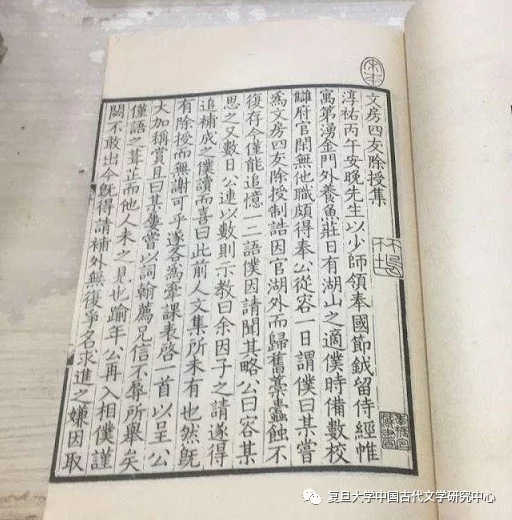 宋本
文房四友除授集
淳祐丙午安晚先生以少師領奉 國節鉞留侍經帷
寓第湧金門外養魚莊日有湖山之適僕時備數校
讎府官閒無他職頗得奉公從容一日謂僕曰某嘗
爲文房四友除授制誥因官湖外而歸舊藁蠹蝕不
復存今僅能追憶一二語僕因請聞其略公曰容某
思之又數日公連以數則示教曰余因子之請遂得
追補成之僕讀而喜曰此前人文集所未有也然旣
有除授而無謝可乎遂各爲牽課表啓一首以呈公
大加稱賞且曰某屢嘗以詞翰薦兄信不辱所舉矣
僅語之葺芷而他人未之見也踰年公再入相僕謹
閟不敢出今旣得請補外無復爭名求進之嫌因取
复旦大学中国古代文学研究中心